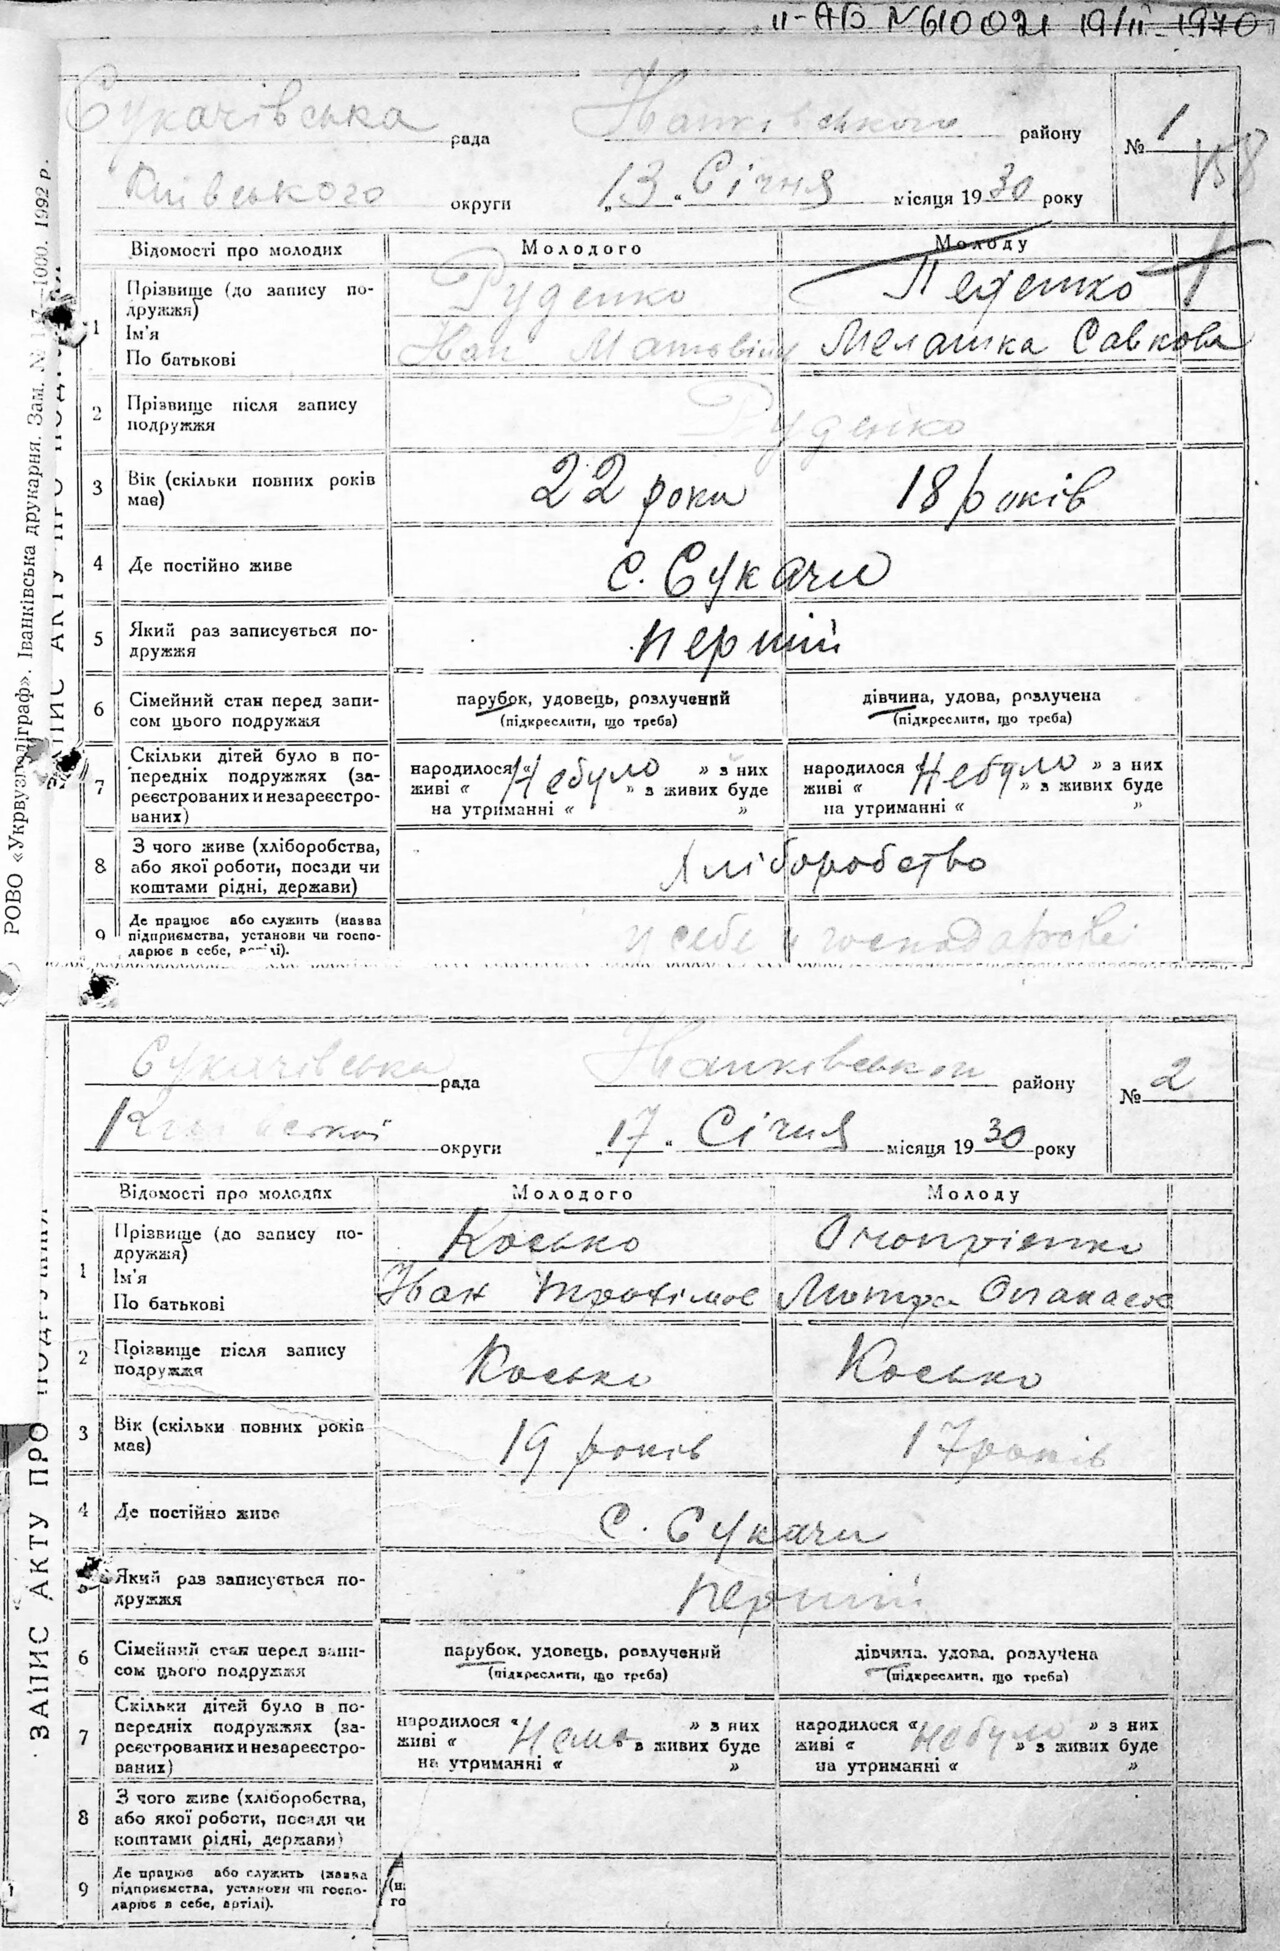 II-АБ № 610021 19/II-1970
Сукачівська рада Іванківського району № 1
158
Київського округи „13“ Січня місяця 1930 року
Відомості про молодих Молодого Молоду
1 Прізвище (до запису по- Руденко Педенко
дружжя)
Ім'я Іван Матвієв Мелашка Савкова
По батькові
2 Прізвище після запису Руденко
подружжя
3 Вік (скільки повних років 22 роки 18 років
має)
4 Де постійно живе с. Сукачи
5 Який раз записується по- перший
дружжя
6 Сімейний стан перед запи- парубок, удовець, розлучений дівчина, удова, розлучена
сом цього подружжя (підкреслити, що треба) (підкреслити, що треба)
7 Скільки дітей було в по- народилося “ Небуло ” з них народилося “ Небуло ” з них
передніх подружжях (за- живі “ ” з живих буде живі “ ” з живих буде
реєстрованих и незареєстро- на утриманні “ ” на утриманні “ ”
ваних)
8 З чого живе (хліборобства, Хліборобство
або якої роботи, посади чи
коштами рідні, держави)
9 Де працює або служить (назва у себе в господарстві
підприємства, установи чи госпо-
дарює в себе, артілі).
РОВО «Укрвузполіграф». Іванківська друкарня. Зам. № 1000. 1992 р.
Сукачівська рада Іванківського району № 2
округи „17“ Січня місяця 1930 року
Відомості про молодих Молодого Молоду
1 Прізвище (до запису по- Косько Онопрієнко
дружжя)
Ім'я Іван Трохімов Мотря Опанасов
По батькові
2 Прізвище після запису Косько Косько
подружжя
3 Вік (скільки повних років 19 років 17 років
має)
4 Де постійно живе с. Сукачи
5 Який раз записується по- перший
дружжя
6 Сімейний стан перед запи- парубок, удовець, розлучений дівчина, удова, розлучена
сом цього подружжя (підкреслити, що треба) (підкреслити, що треба)
7 Скільки дітей було в по- народилося “ Нема ” з них народилося “ небуло ” з них
передніх подружжях (за- живі “ в живих буде живі “ ” з живих буде
реєстрованих и незареєстро- на утриманні “ ” на утриманні “ ”
ваних)
8 З чого живе (хліборобства,
або якої роботи, посади чи
коштами рідні, держави)
9 Де працює або служить (назва
підприємства, установи чи госпо-
дарює в себе, артілі).
ЗАПИС АКТУ ПРО ПОДРУЖЖЯ